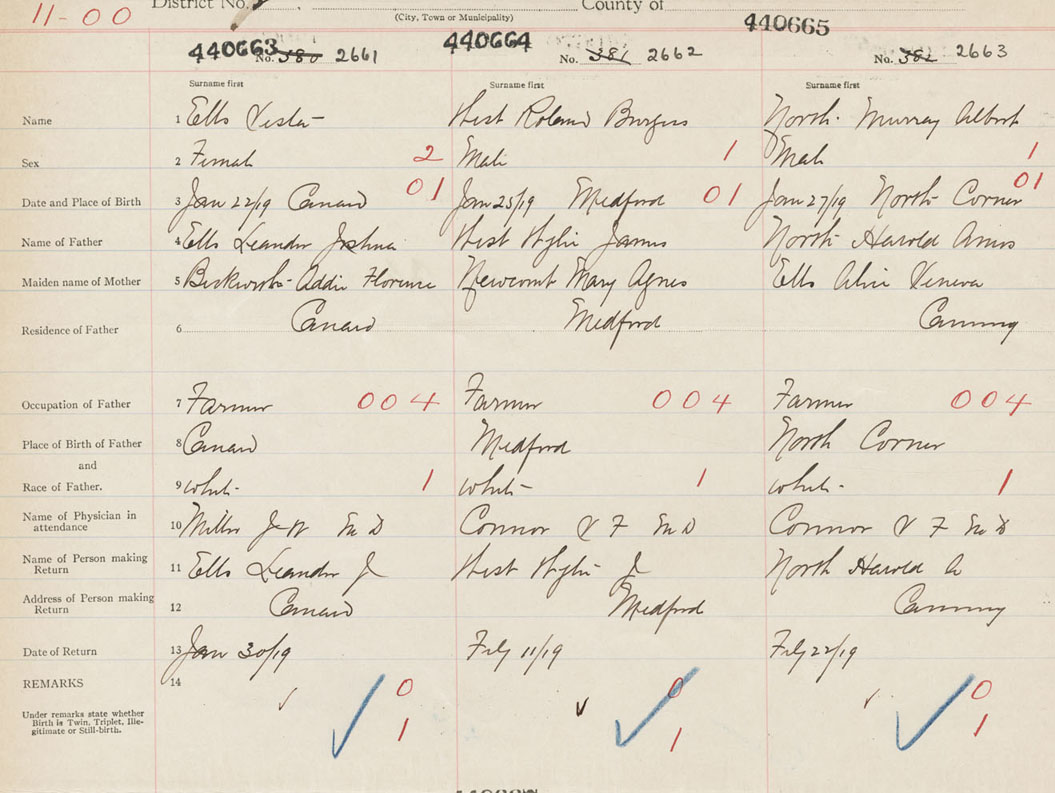 11-00 District No. County of
(City, Town or Municipality)
440663 No. 380 2661 440664 No. 381 2662 440665 No. 382 2663
Surname first Surname first Surname first
Name 1 Ells Vesta West Roland Burgess North Murray Albert
Sex 2 Female 2 Male 1 Male 1
Date and Place of Birth 3 Jan 22/19 Canard 01 Jan 25/19 Medford 01 Jan 27/19 North Corner 01
Name of Father 4 Ells Leander Joshua West Wylie James North Harold Amos
Maiden name of Mother 5 Beckwith Addie Florence Newcomb Mary Agnes Ells Alice Veneva
Residence of Father 6 Canard Medford Canning
Occupation of Father 7 Farmer 004 Farmer 004 Farmer 004
Place of Birth of Father 8 Canard Medford North Corner
and
Race of Father. 9 White 1 White 1 White 1
Name of Physician in attendance 10 Miller J W M D Connor V F M D Connor V F M D
Name of Person making Return 11 Ells Leander J West Wylie J North Harold A
Address of Person making Return 12 Canard Medford Canning
Date of Return 13 Jan 30/19 Feby 11/19 Feby 22/19
REMARKS 14 0 0 0
Under remarks state whether Birth is Twin, Triplet, Ille-
gitimate or Still-birth. 1 1 1